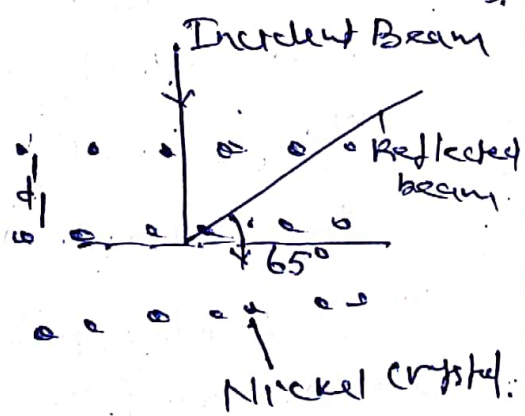 Incident Beam
Reflected
beam
d
65°
Nickel crystal.